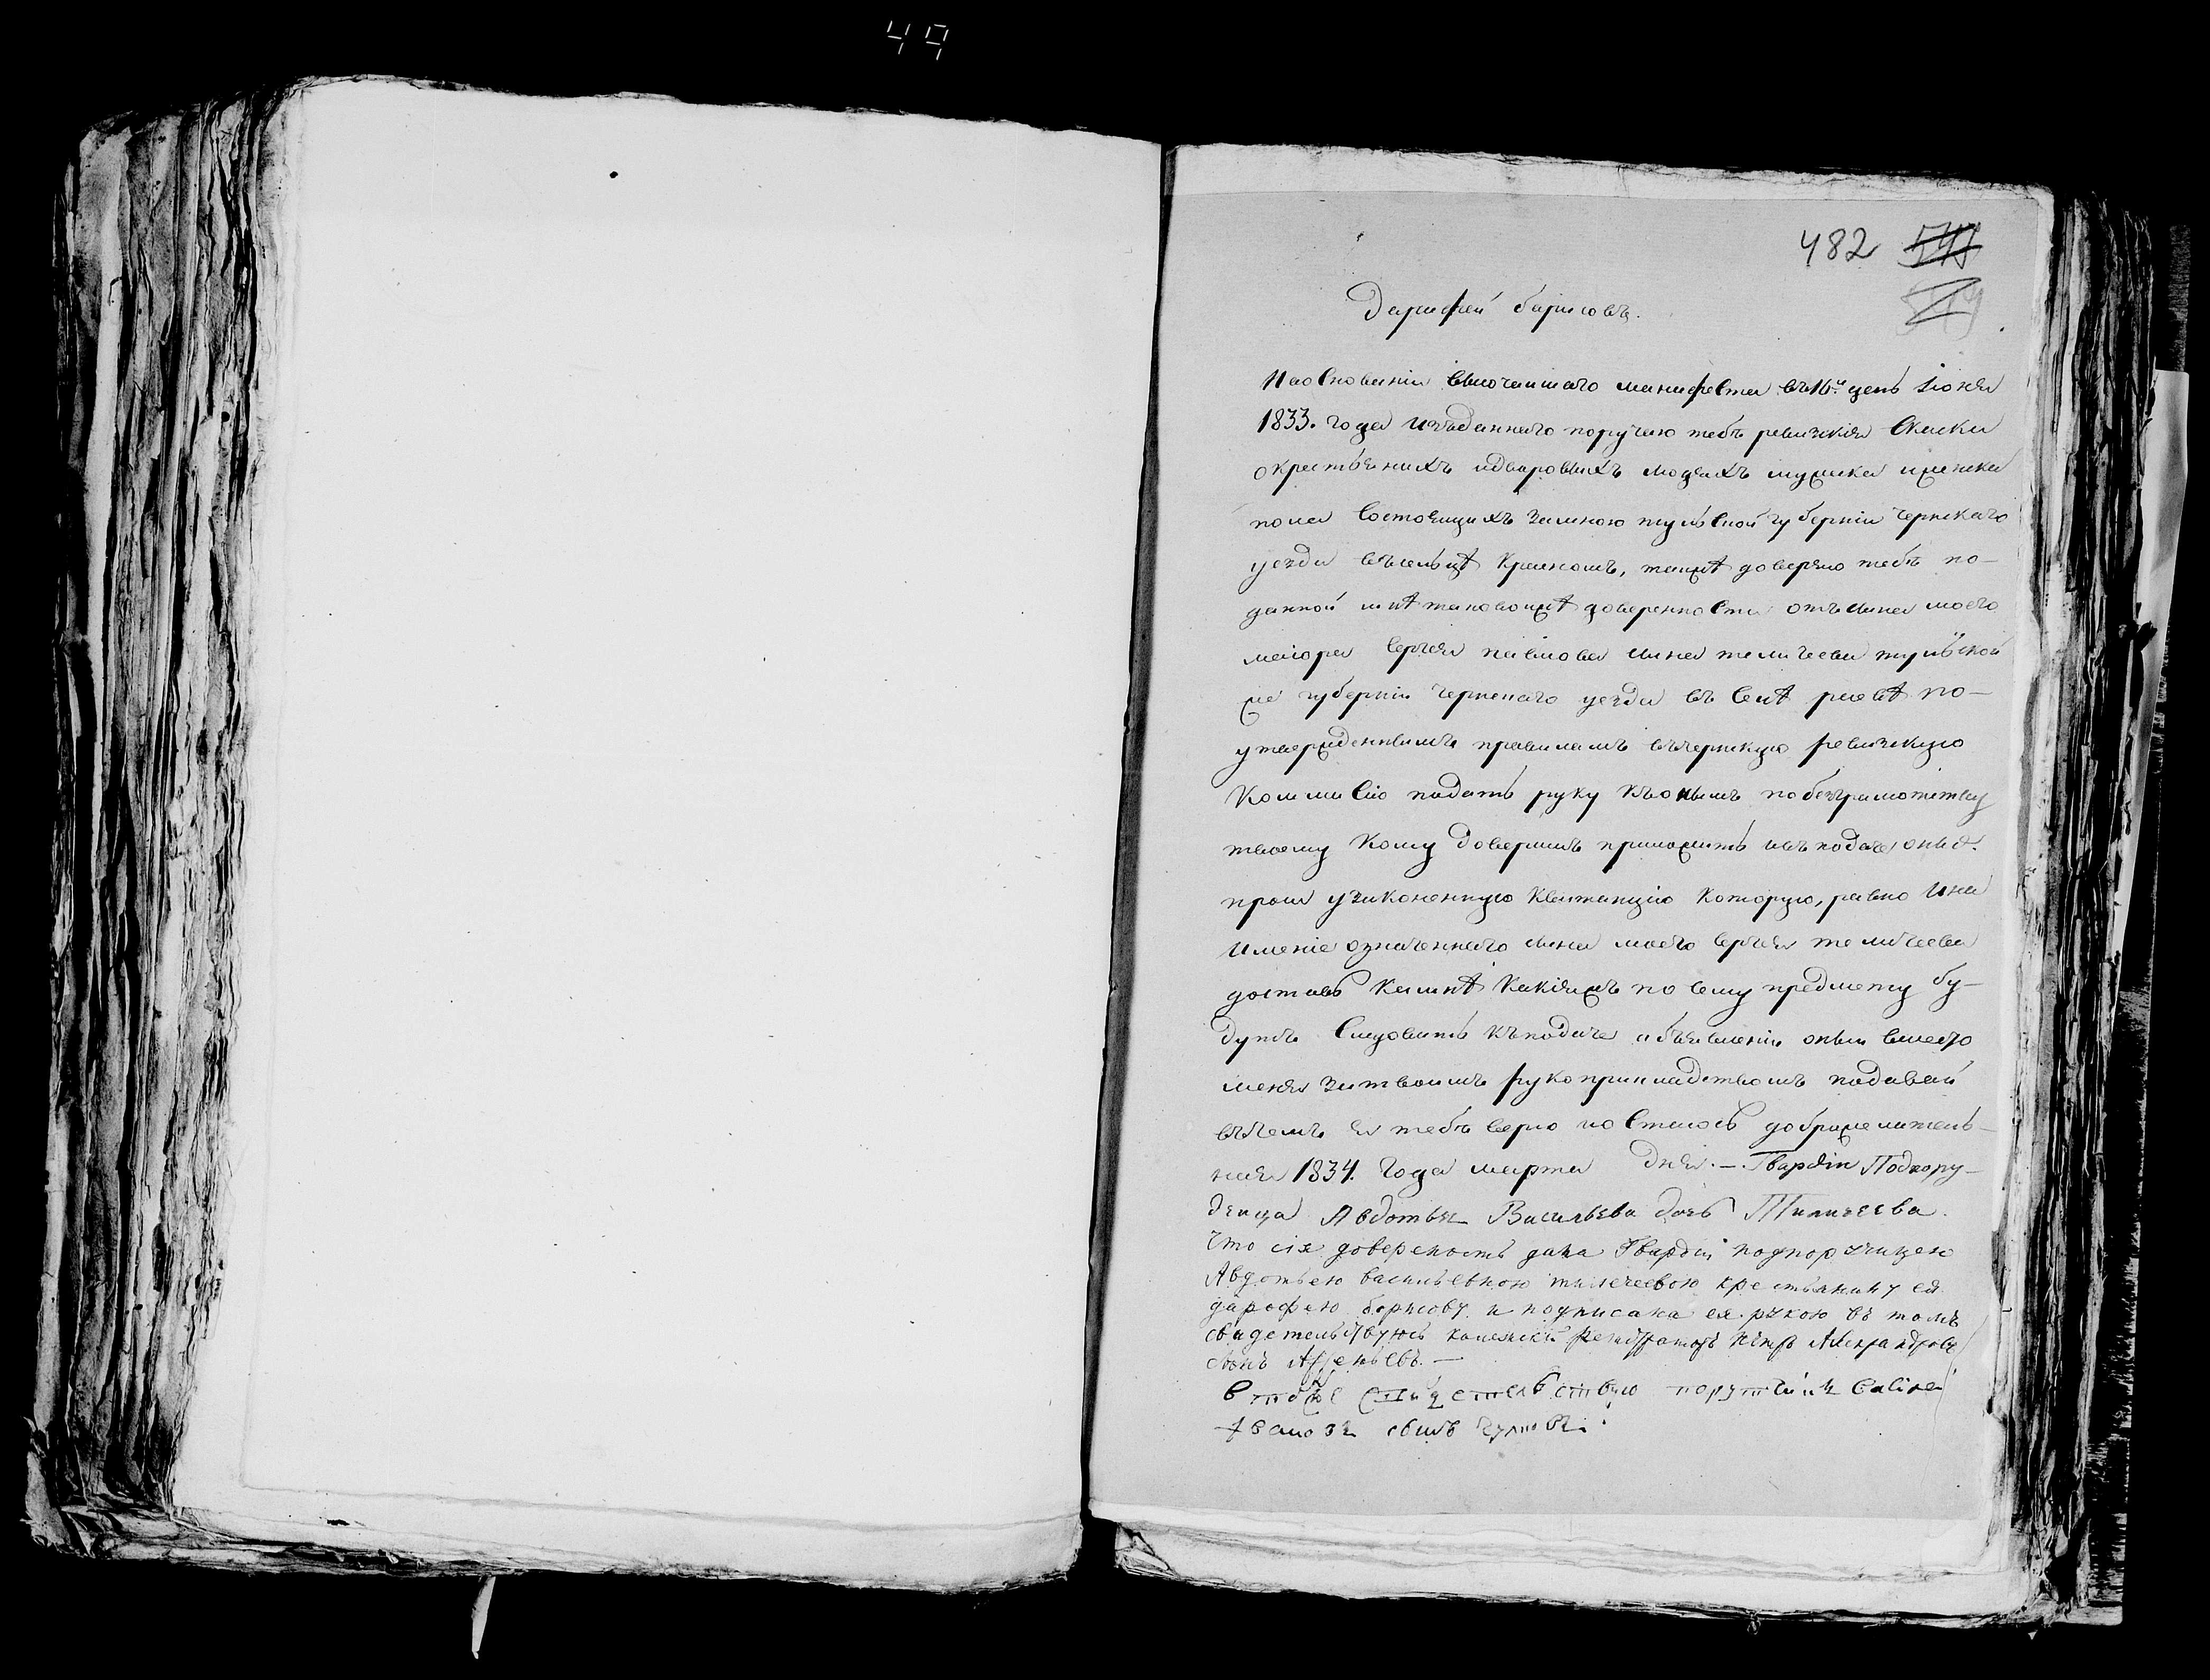 49
482
Дарифей барисовъ.
На основаніи высочаишаго манифеста въ 16й день Іюня
1833. года изъданнаго поручаю тебѣ ревизкія Скаски
о крестьянихъ и двировыхъ людяхъ мужска и женска
пола Состоящихъ замною тульской губерніи чернскаго
уезда въ сельцѣ Красномъ, такжѣ доверяю тебѣ по-
данной мнѣ таковойжѣ доверенности отъ сына моего
маіора Сергея павлова сына теличеева тульской
же губерніи чернскаго уезда въ Селѣ раевѣ по-
утвержденнымъ правиламъ въ чернскую ревизскую
Коммисію подать руку къ онымъ по безграмотству
твоему кому доверишъ приложить ивъ подаче оныхъ.
проси узаконенную Квитанцію которую, равно и на
имѣніе означеннаго сына моего сергея теличеева
доставь камнѣ какіяжъ по сему предмету бу-
дутъ Следовать къ подаче объявленіи оныи вместо
меня затвоимъ рукоприкладствомъ подавай
въ чемъ я тебѣ верю и остаюсь доброжелатель-
ная 1834. Года марта дня. — Гвардіи Подпору-
чица Авдотья Васильева дочь Тиличеева.
Что сія довереность дана Гвардіи подпоручицею
Авдотьею васильевною тиличеевою крестьянину ея
дарофею борисову и подписана ея рукою въ томъ
свидетельствуюсь колежскій Регистраторъ петръ Александровъ
сынъ Арсеньевъ. —
В томже свидетельствую порутчикъ
сынъ